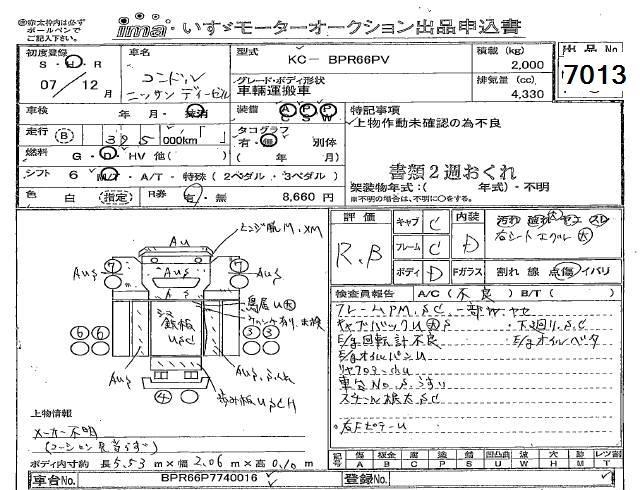 ※赤太枠内は必ず
ボールペンで
ご記入下さい。
ima いすゞモーターオークション出品申込書
初度登録
S・H・R
07/12月
車名
コンドル
ニッサンディーゼル
型式
KC- BPR66PV
積載 (kg)
2,000
グレード・ボディ形状
車輛運搬車
排気量 (cc)
4,330
出品No.
7013
車検
年 月・抹消
装備
A P P
C S W
特記事項
上物作動未確認の為不良
走行
(B) 395 000km
タコグラフ
有・無 別体
( 年 月)
燃料
G・D・HV 他( )
書類2週おくれ
架装物年式:( 年式)・不明
※不明の場合は、不明に○をする。
シフト 6 M/T・A/T・特殊 (2ペダル・3ペダル)
色 白 (指定)
R券 有・無 8,660 円
評価
R.B
キャブ C
フレーム C
ボディ D
内装 D
Fガラス
汚れ 破れ大 ヤニ スレ
右シートエグレ大
割れ 線 点傷 イバリ
検査員報告 A/C (不良) B/T ( )
フレームPM.SC 一部W.ヤセ
キャブバックU大S
・下廻り.S.C
E/g回転計不良
・E/gオイルベタ
E/gオイルパンU
車台No.S.うすい
Au
Aus
Aus
Aus
Aus
7
7
6 6
3 3
4
鉄板
USC
鳥居U大
歩み板USCH
上物情報
メーカー不明
(コーション見当らず)
ボディ内寸約 長5.53 m×幅 2.06 m×高0.10 m
記号
傷 板金 腐食 錆 凹凸曲 波 穴 要交換 補修 レンズ割
A B C P S U W H X M T
車台No. BPR66P7740016
登録No.